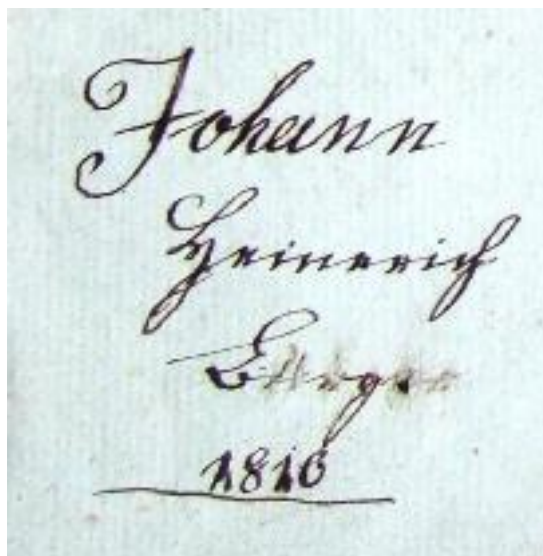 Johann
Heinerich
1816